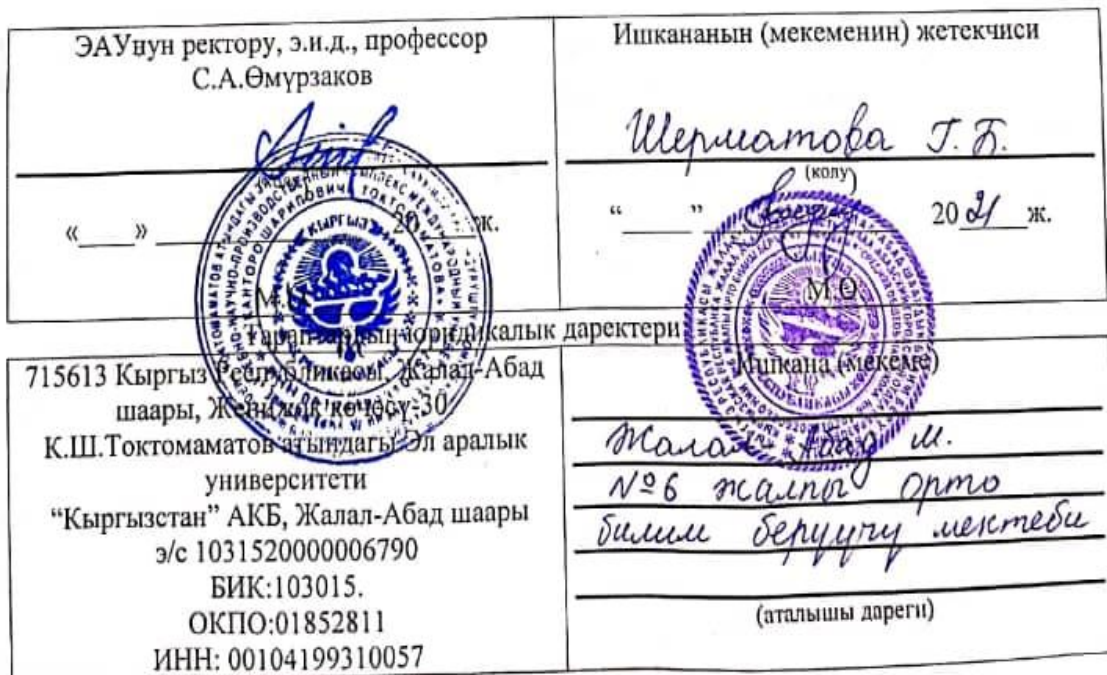 ЭАУнун ректору, э.и.д., профессор
С.А.Өмүрзаков
«____» 20 ж.
М.О
Ишкананын (мекеменин) жетекчиси
Шерматова Г.Б.
(колу)
“____” 2021 ж.
М.О
Тараптардын юридикалык даректери
715613 Кыргыз Республикасы, Жалал-Абад
шаары, Жеңижок көчөсү-30
К.Ш.Токтомаматов атындагы Эл аралык
университети
“Кыргызстан” АКБ, Жалал-Абад шаары
э/с 1031520000006790
БИК:103015.
ОКПО:01852811
ИНН: 00104199310057
Ишкана (мекеме)
Жалал Абад ш.
№6 жалпы орто
билим берүүчү мектеби
(аталышы дареги)